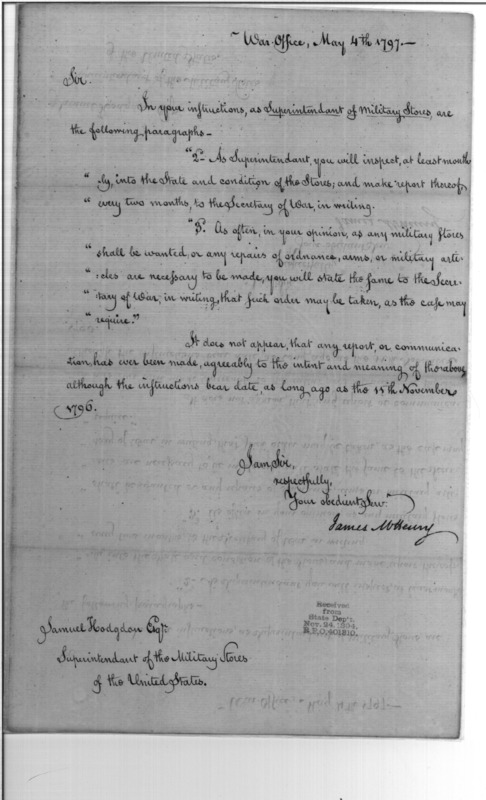 War Office, May 4th 1797.—
Sir.
In your instructions, as Superintendant of Military Stores, are
the following paragraphs—
"2d As Superintendant, you will inspect, at least month
" ly, into the State and condition of the Stores; and make report thereof,
" every two months, to the Secretary of War, in writing.
"3. As often, in your opinion, as any military Stores
" shall be wanted, or any repairs of ordnance, arms, or military arti-
" cles are necessary to be made, you will state the same to the Secre-
" tary of War, in writing, that such order may be taken, as the case may
" require."
It does not appear, that any report, or communica-
tion has ever been made, agreeably to the intent and meaning of the above,
although the instructions bear date, as long ago as the 11th November
1796.
I am, Sir,
respectfully,
Your obedient Serv.t
James McHenry
Received
from
State Dep't.
Nov. 24, 1894.
Samuel Hodgdon Esqr.
Superintendant of the Military Stores
of the United States.